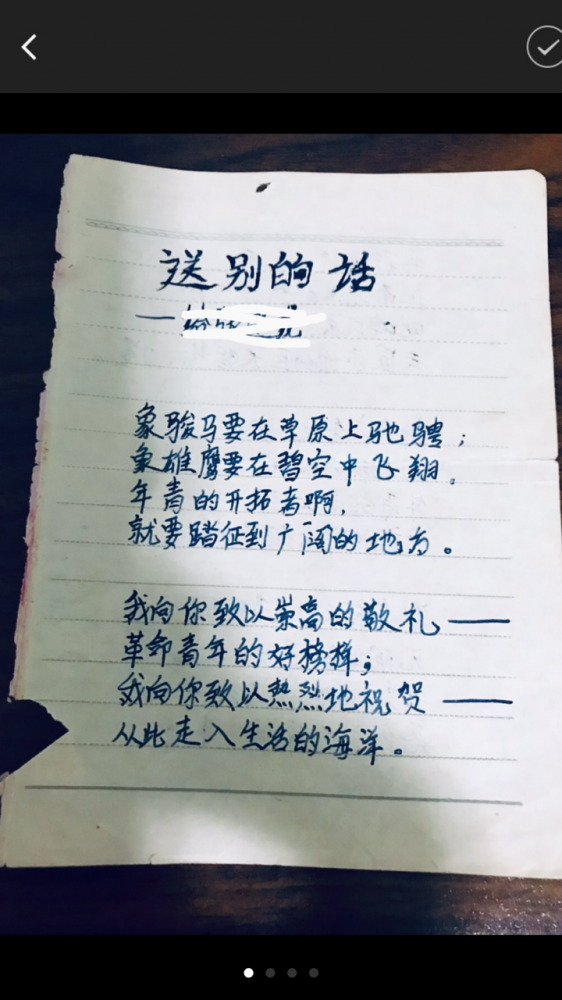 送别的话
象骏马要在草原上驰骋；
象雄鹰要在碧空中飞翔。
年青的开拓者啊，
就要踏征到广阔的地方。
我向你致以崇高的敬礼——
革命青年的好榜样；
我向你致以热烈地祝贺——
从此走入生活的海洋。